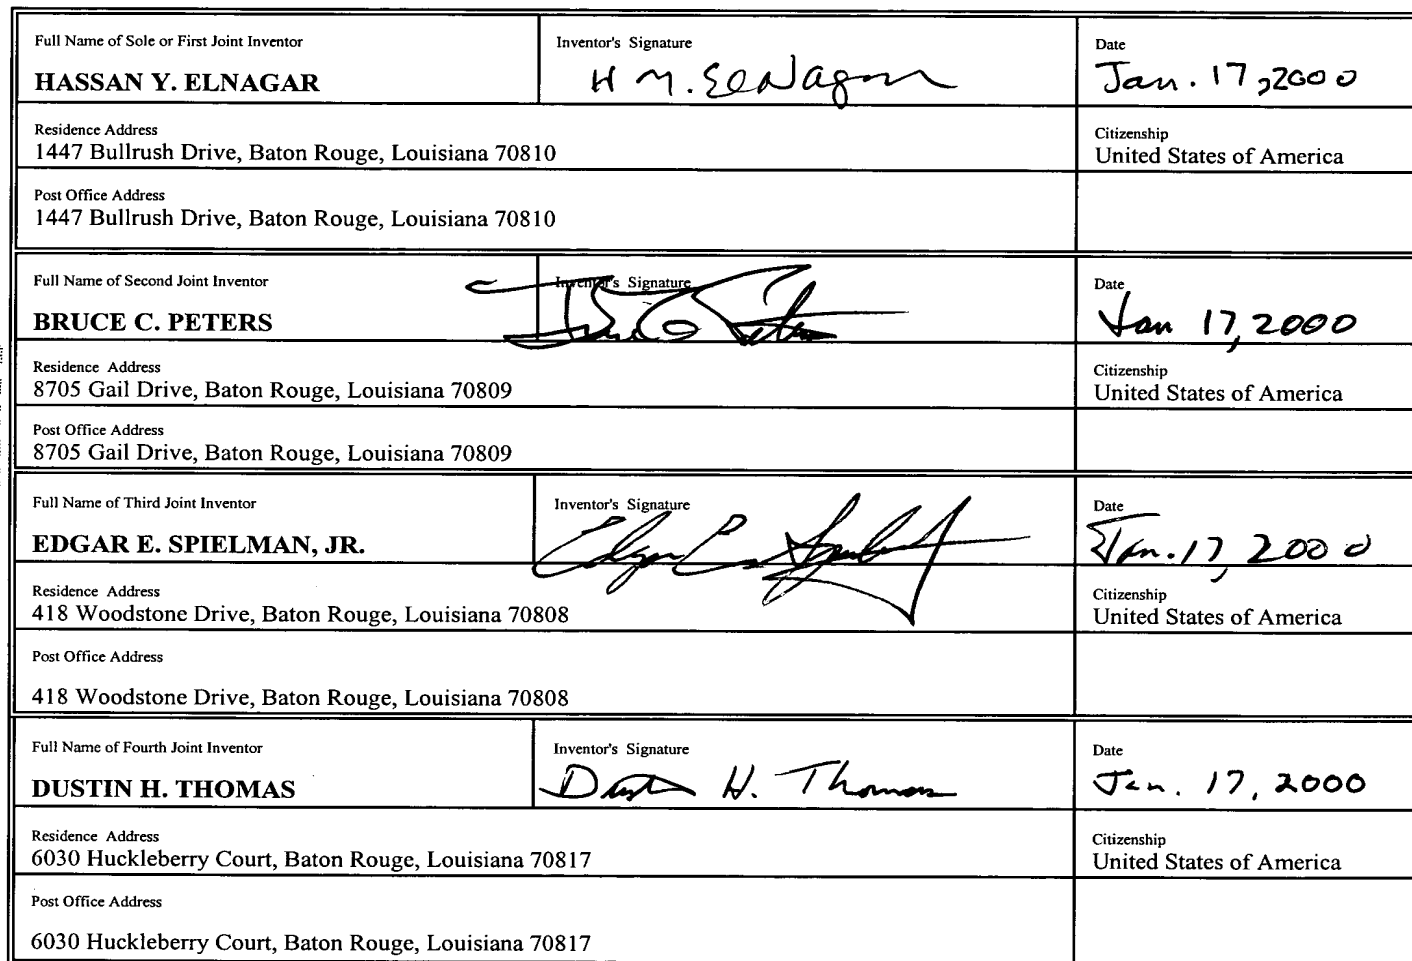 Full Name of Sole or First Joint Inventor
HASSAN Y. ELNAGAR
Inventor's Signature
H Y. ElNagar
Date
Jan. 17, 2000
Residence Address
1447 Bullrush Drive, Baton Rouge, Louisiana 70810
Citizenship
United States of America
Post Office Address
1447 Bullrush Drive, Baton Rouge, Louisiana 70810
Full Name of Second Joint Inventor
BRUCE C. PETERS
Inventor's Signature
Bruce C Peters
Date
Jan 17, 2000
Residence Address
8705 Gail Drive, Baton Rouge, Louisiana 70809
Citizenship
United States of America
Post Office Address
8705 Gail Drive, Baton Rouge, Louisiana 70809
Full Name of Third Joint Inventor
EDGAR E. SPIELMAN, JR.
Inventor's Signature
Edgar E. Spielman Jr
Date
Jan. 17, 2000
Residence Address
418 Woodstone Drive, Baton Rouge, Louisiana 70808
Citizenship
United States of America
Post Office Address
418 Woodstone Drive, Baton Rouge, Louisiana 70808
Full Name of Fourth Joint Inventor
DUSTIN H. THOMAS
Inventor's Signature
Dustin H. Thomas
Date
Jan. 17, 2000
Residence Address
6030 Huckleberry Court, Baton Rouge, Louisiana 70817
Citizenship
United States of America
Post Office Address
6030 Huckleberry Court, Baton Rouge, Louisiana 70817